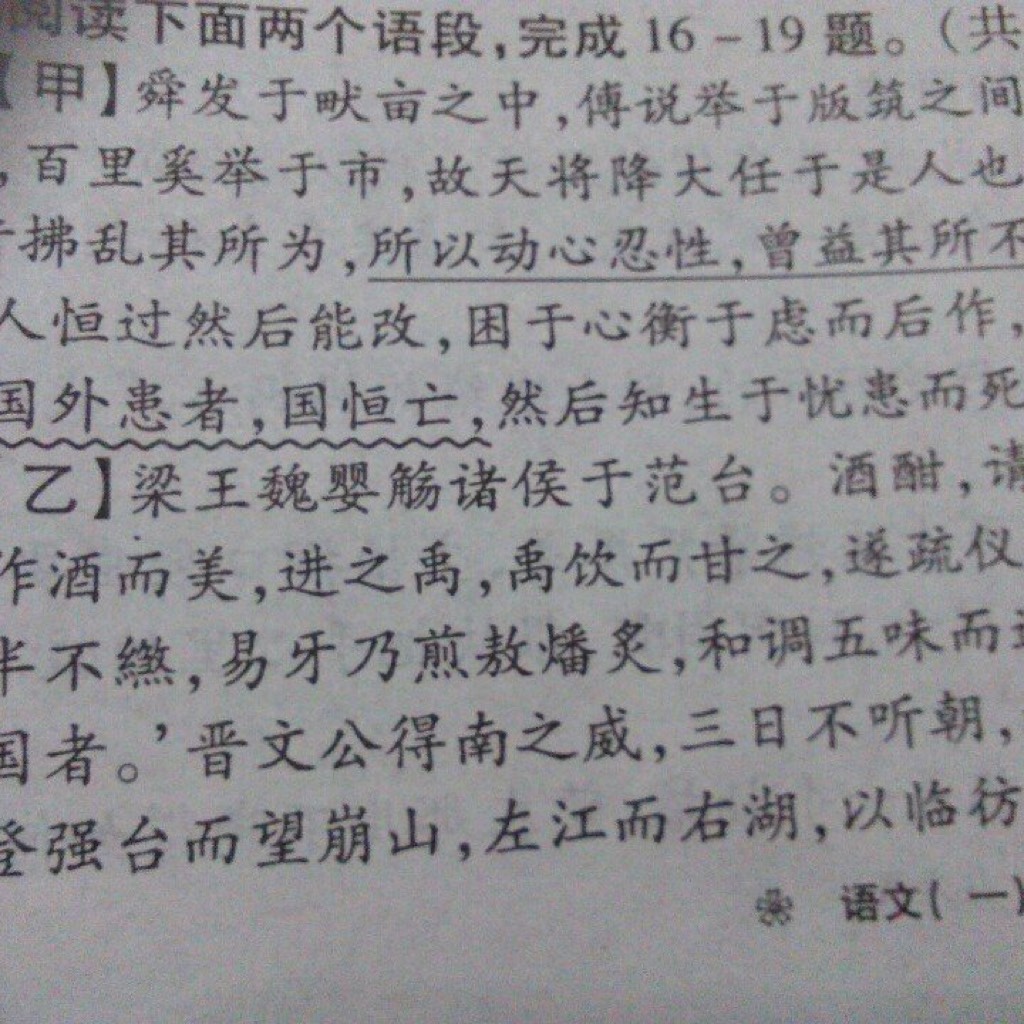 阅读下面两个语段,完成16-19题。(共
【甲】舜发于畎亩之中,傅说举于版筑之间
,百里奚举于市,故天将降大任于是人也
拂乱其所为,所以动心忍性,曾益其所不
人恒过然后能改,困于心衡于虑而后作,
国外患者,国恒亡,然后知生于忧患而死
乙】梁王魏婴觞诸侯于范台。酒酣,请
作酒而美,进之禹,禹饮而甘之,遂疏仪
半不㷉,易牙乃煎敖燔炙,和调五味而进
国者。’晋文公得南之威,三日不听朝,
登强台而望崩山,左江而右湖,以临彷
语文(一)